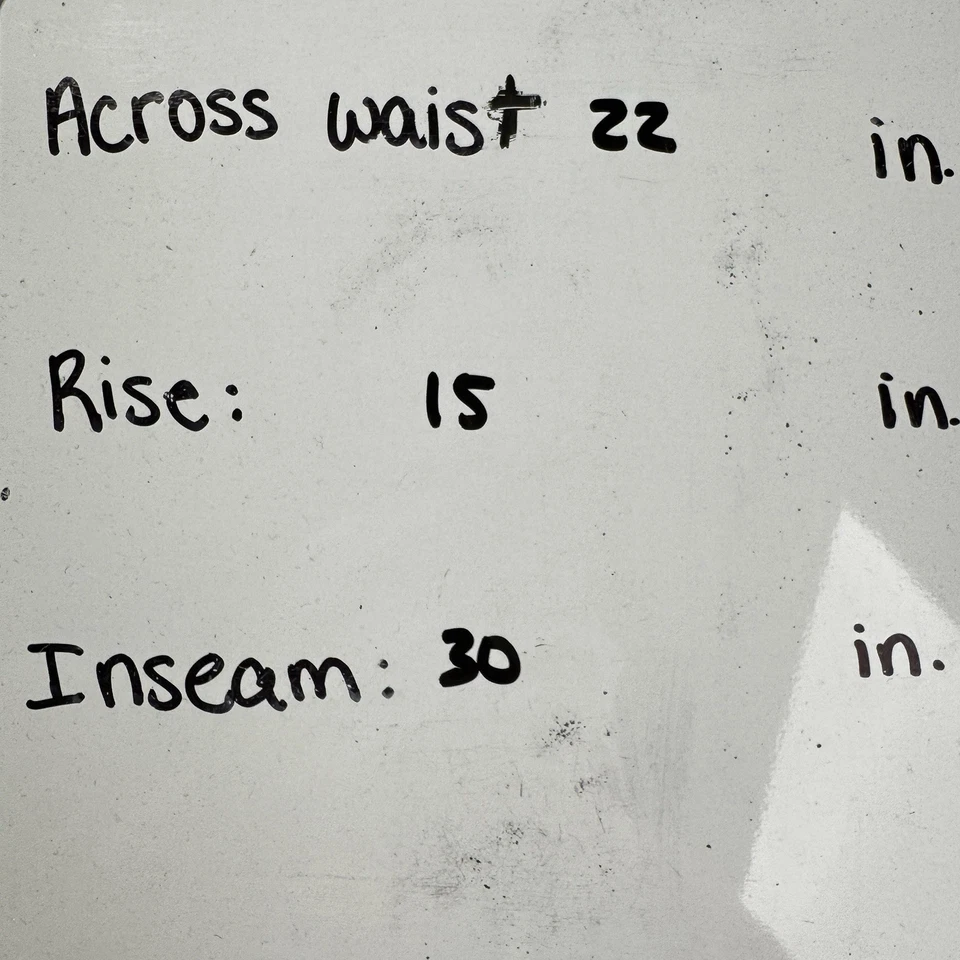 Across waist 22 in.
Rise: 15 in.
Inseam: 30 in.